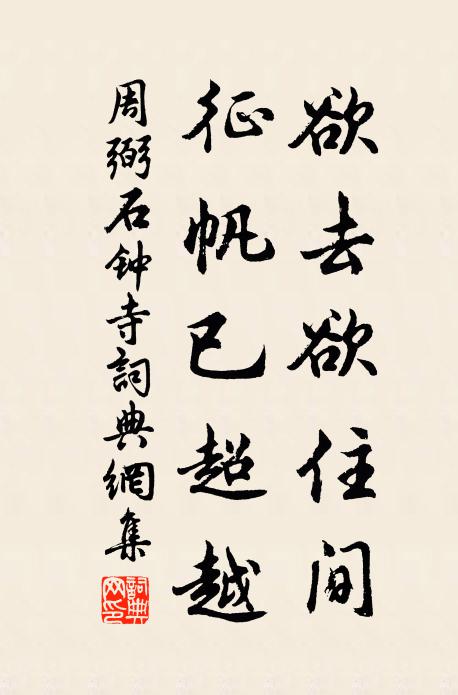 欲去欲住间
征帆已超越
周弼石钟寺詞典網集
詞典网印